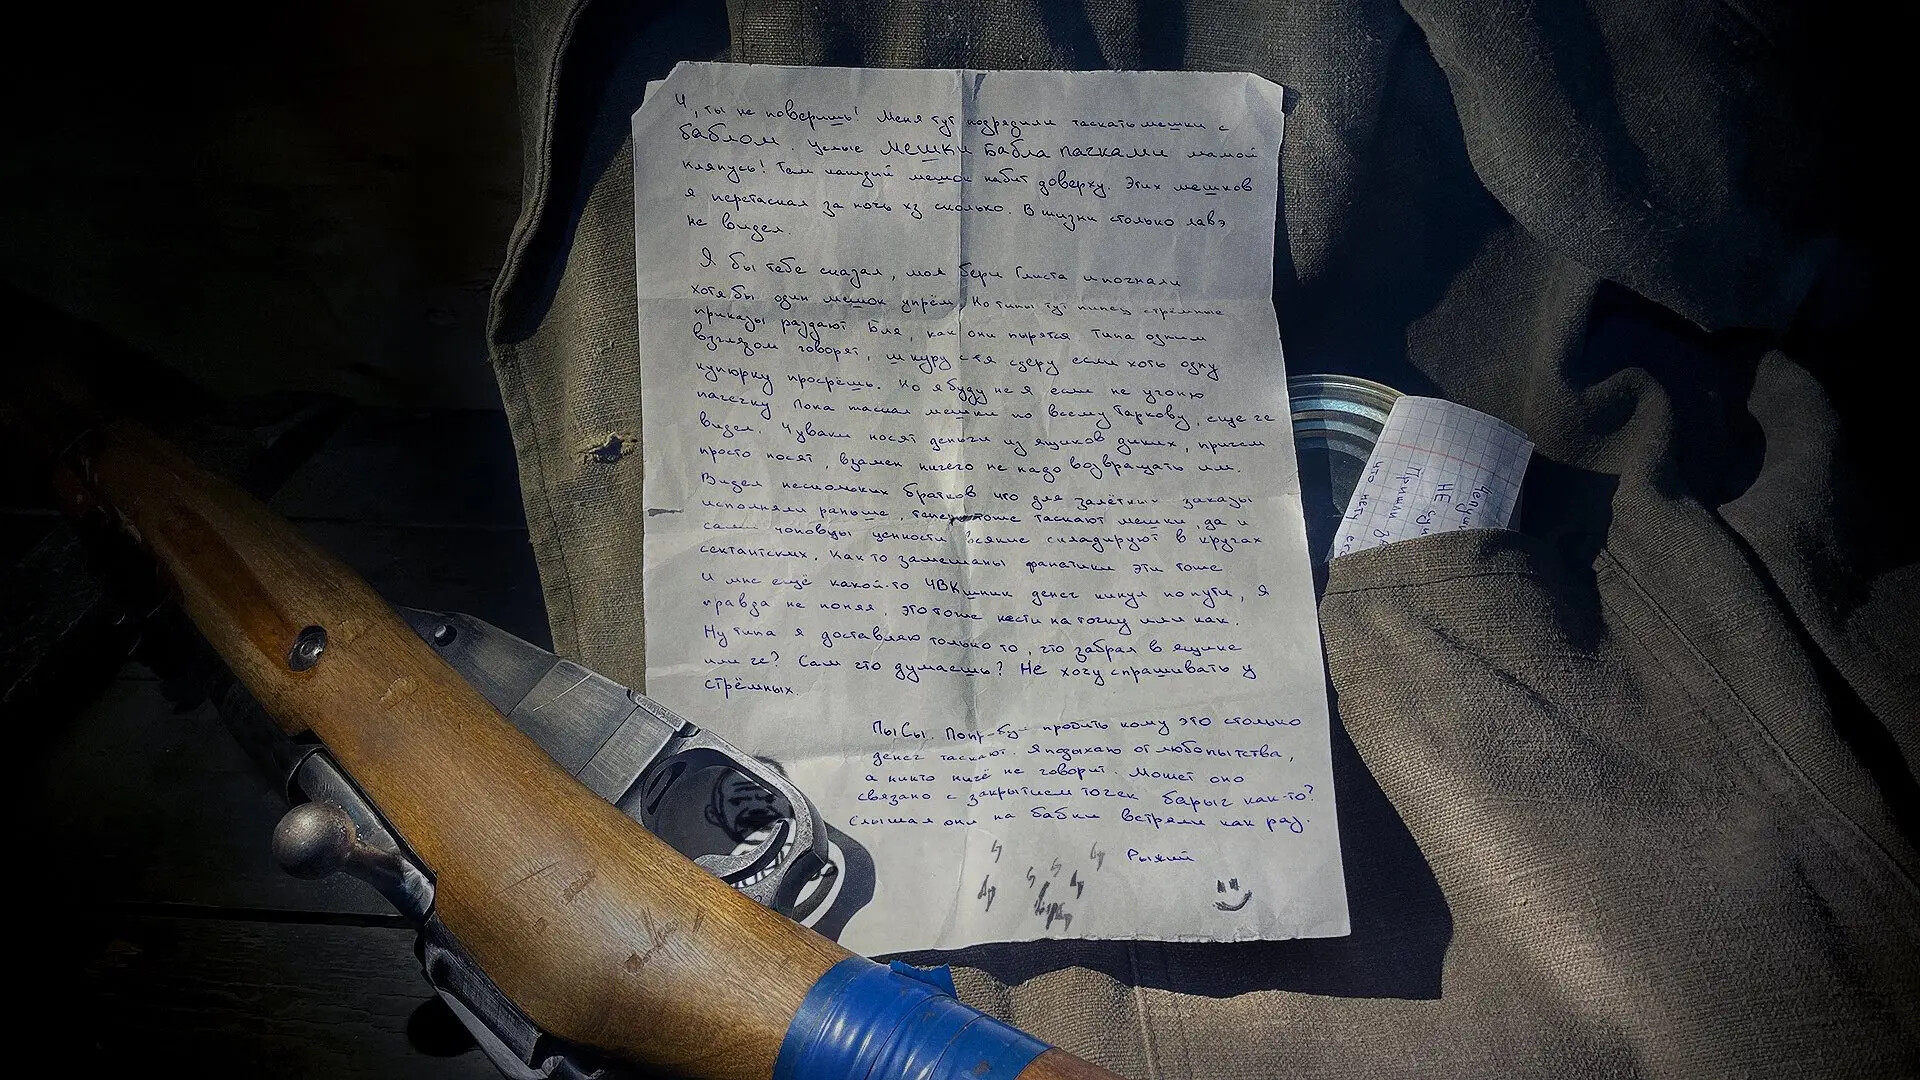 Ч, ты не поверишь! Меня тут подрядили таскать мешки с
баблом. Целые мешки бабла пачками мамой
клянусь! Там каждый мешок набит доверху. Этих мешков
я перетаскал за ночь хз сколько. В жизни столько лавэ
не видел.
Я бы тебе сказал, мол бери Глиста и погнали
хотя бы один мешок упрём. Но типы тут пипец стрёмные
приказы раздают Бля, как они пырятся типа одним
взглядом говорят, шкуру с тя сдеру если хоть одну
купюрку просрёшь. Но я буду не я если не учоню
пачечку Пока таскал мешки по всему Таркову, еще че
видел. Чуваки носят деньги из ящиков диких, причем
просто носят, взамен ничего не надо возвращать им.
Видел нескольких братков что для залётных заказы
исполняли раньше, теперь тоже таскают мешки, да и
сами чоновцы ценности всякие складируют в кругах
сектантских. Как то замешаны фанатики эти тоже
И мне ещё какой-то ЧВКшник денег кинул по пути, я
правда не понял, это тоже нести на точку или как.
Ну типа я доставляю только то, что забрал в ящике
или че? Сам что думаешь? Не хочу спрашивать у
стрёмных.
ПыСы. Попробуй пробить кому это столько
денег таскают. Я подыхаю от любопытства,
а никто ничё не говорит. Может оно
связано с закрытием точек барыг как-то?
Слышал они на бабки встряли как раз.
Рыжий
НЕ
Пришли
что нету